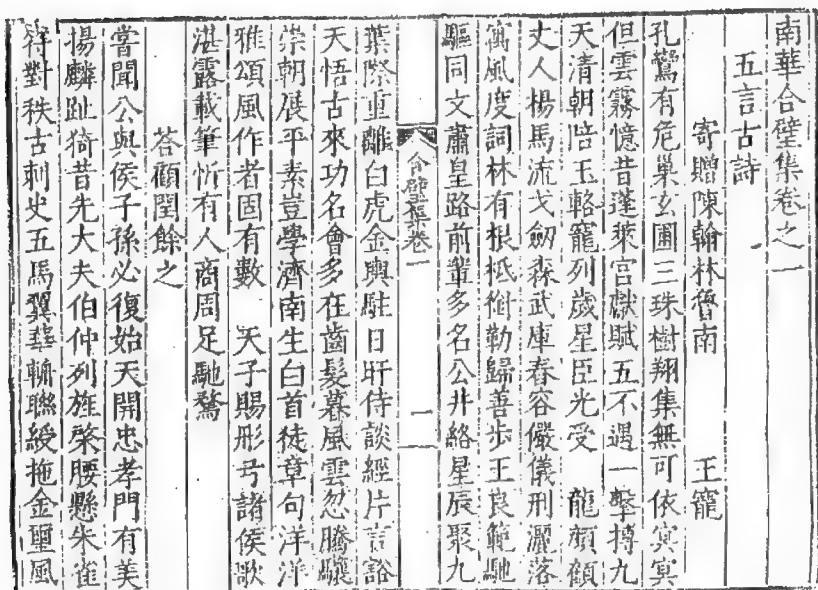 南華合璧集卷之一
五言古詩
寄贈陳翰林魯南 王寵
孔鸞有危巢玄圃三珠樹翔集無可依㝠㝠
但雲霧憶昔蓬萊宮獻賦五不遇一擊摶九
天清朝陪玉輅寵列歲星臣光受 龍顏顧
丈人楊馬流戈劒森武庫舂容儼儀刑灑落
寓風度詞林有根柢銜勒歸善步王良範馳
驅同文蕭皇路前輩多名公井絡星辰聚九
合璧集卷一 一
葉際重離白虎金輿駐日旰侍談經片言豁
天悟古來功名會多在齒髮暮風雲忽騰驤
崇朝展平素豈學濟南生白首徒章句洋洋
雅頌風作者固有數 天子賜彤弓諸侯歌
湛露載筆忻有人商周足馳騖
荅顧閏餘之
嘗聞公與侯子孫必復始天開忠孝門有美
揚麟趾猗昔先大夫伯仲列旌棨腰懸朱雀
符對秩古刺史五馬翼華轓聯綬拖金璽風